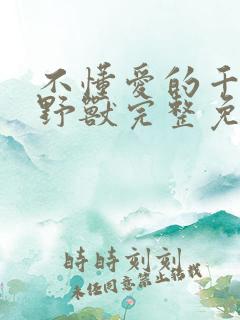 不懂愛的千
野獸完整免
時時刻刻
未经同意禁止转载